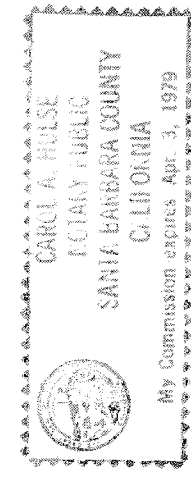 CAROL A. HULSE
NOTARY PUBLIC
SANTA BARBARA COUNTY
CALIFORNIA
My Commission expires Apr. 3, 1979